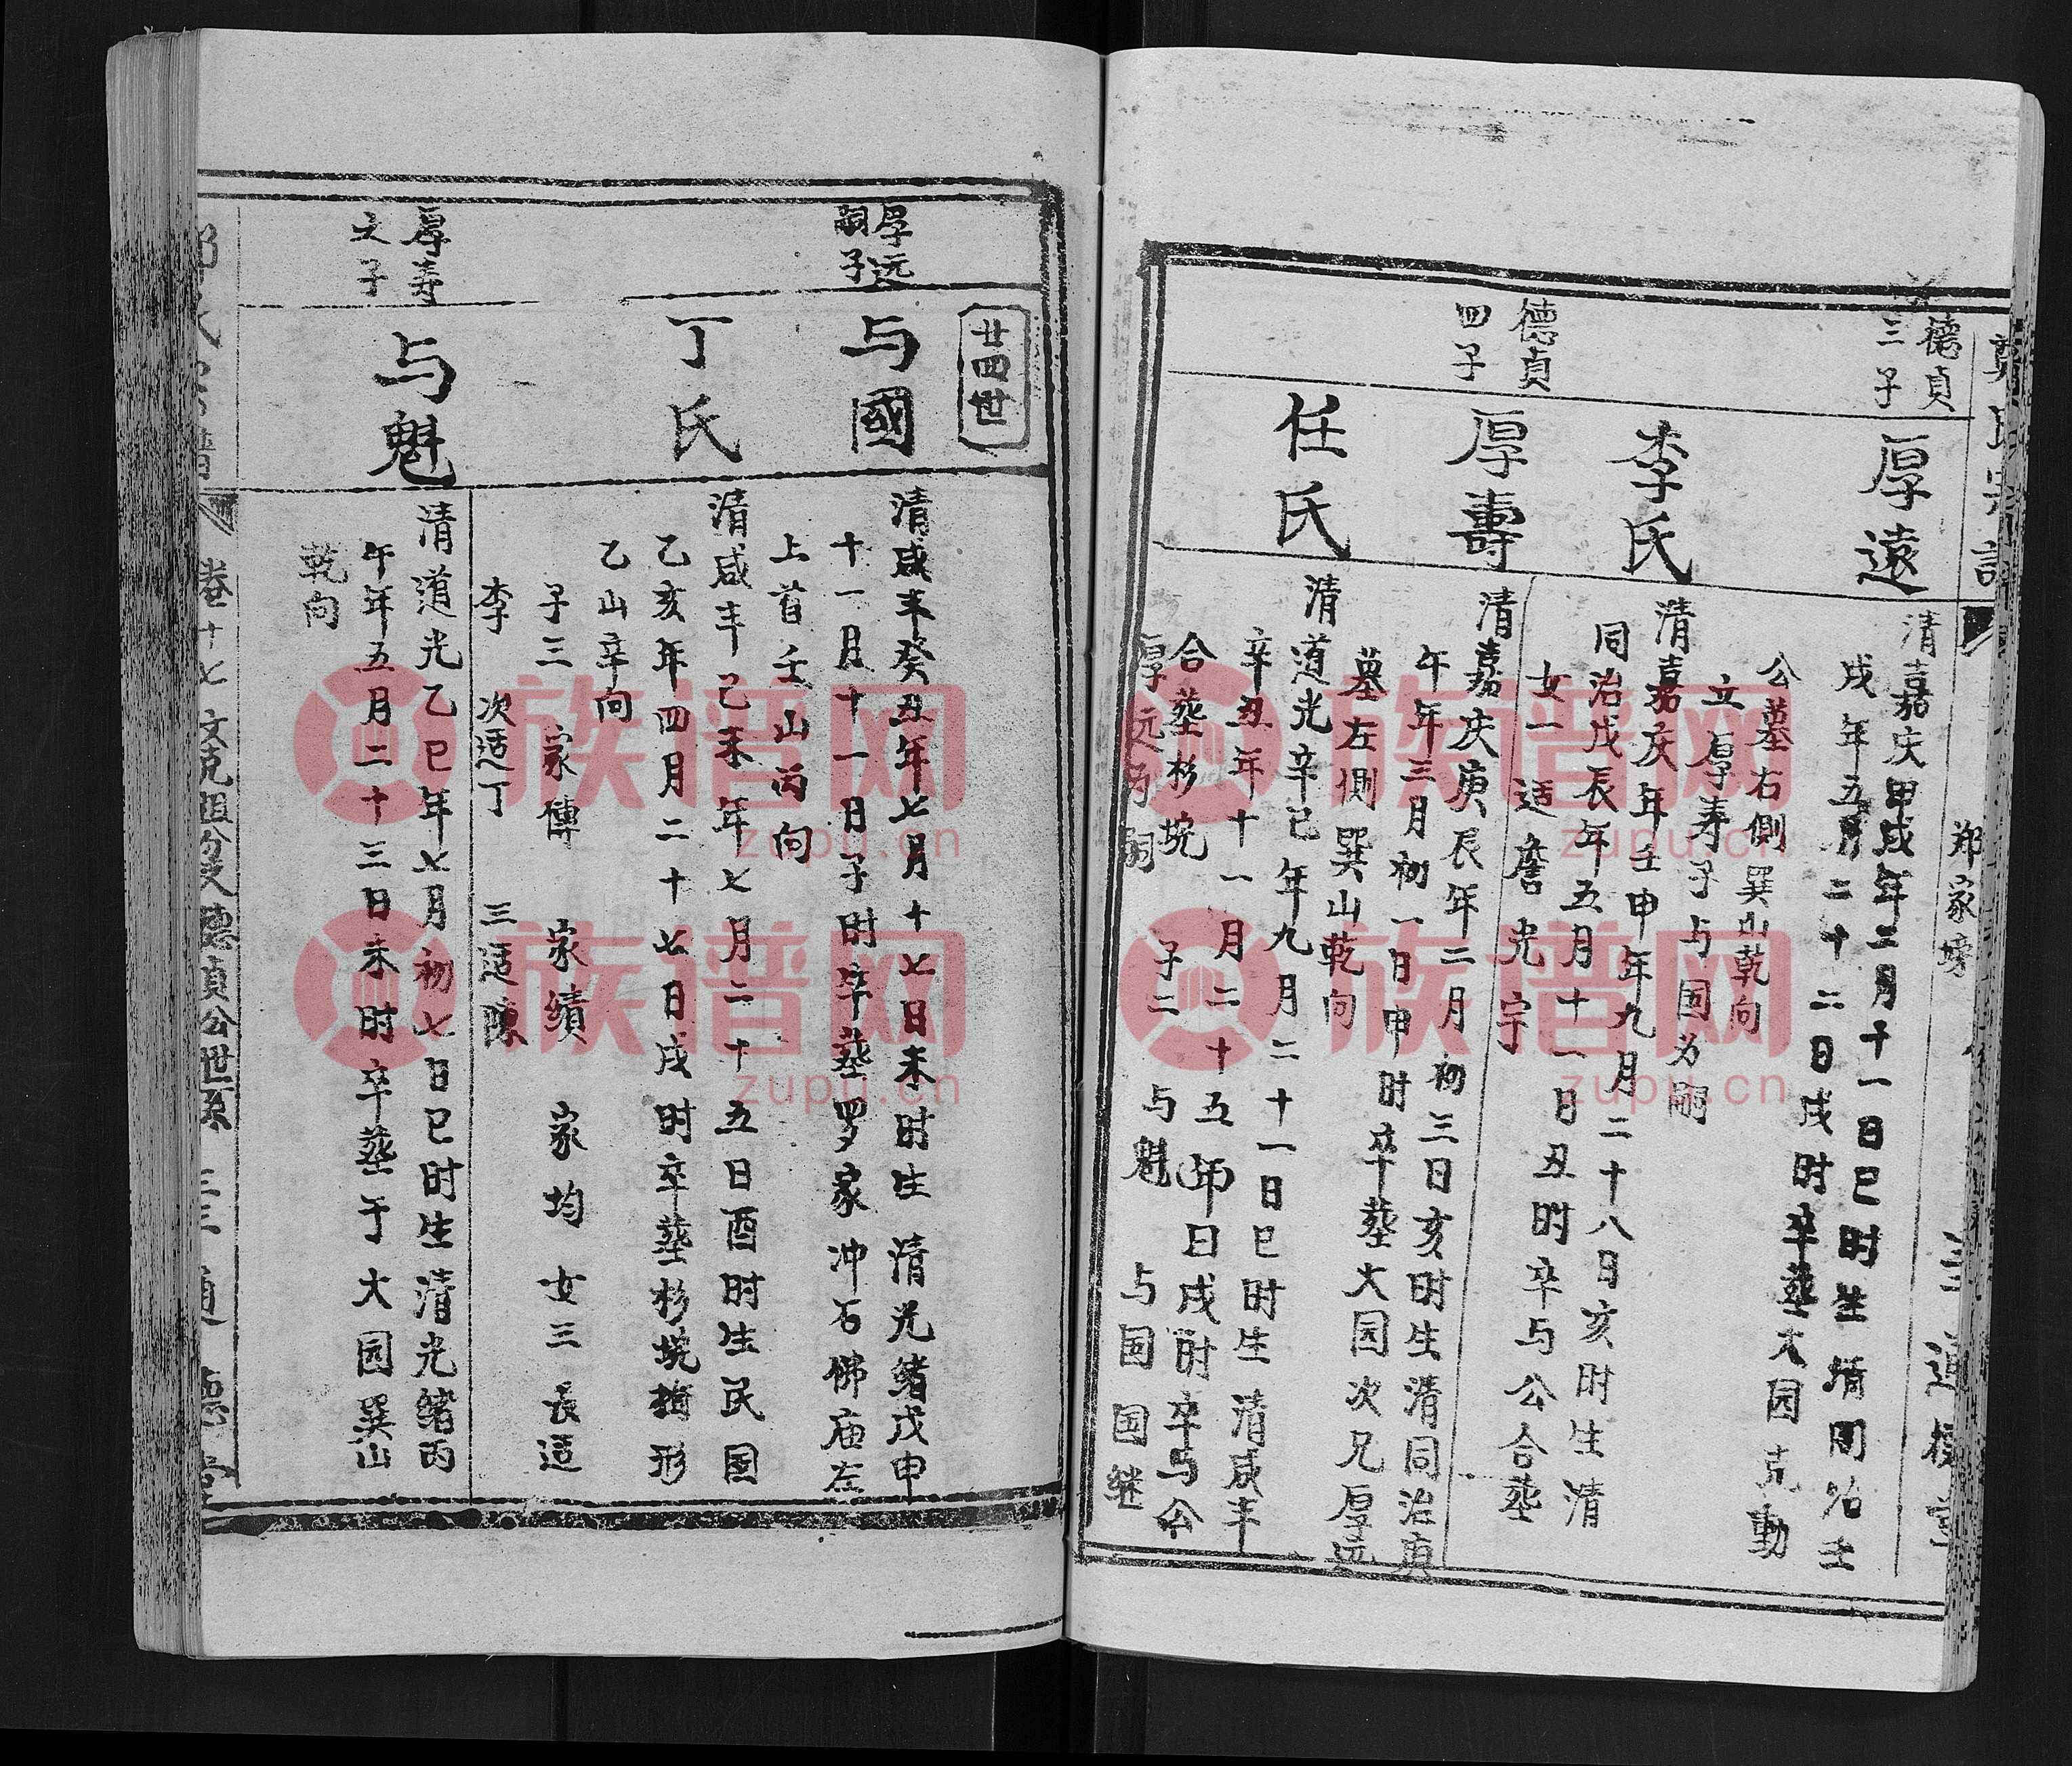 郑家塝
德貞
三子
厚遠
清嘉庆甲戌年二月十一日巳时生清同治壬
戌年五月二十二日戌时卒葬大园克勤
公墓右側巽山乾向
立厚寿子与国为嗣
李氏
清嘉庆年壬申年九月二十八日亥时生清
同治戊辰年五月十一日丑时卒与公合葬
女一 适詹光宇
德貞
四子
厚壽
清嘉庆庚辰年二月初三日亥时生清同治庚
午年三月初一日申时卒葬大园次兄厚远
墓左側巽山乾向
任氏
清道光辛巳年九月二十一日巳时生清咸丰
辛丑年十一月二十五日戌时卒与公
合葬杉垸 子二 与魁 与国 国继
厚远为嗣
廿四世
厚远
嗣子
与國
清咸丰癸丑年七月十七日未时生清光绪戊申
十一月十一日子时卒葬罗家冲石佛庙左
上首壬山丙向
丁氏
清咸丰己未年七月二十五日酉时生民国
乙亥年四月二十七日戌时卒葬杉垸形
乙山辛向
子三 家傳 家績 家均 女三長适
李 次适丁 三适陳
厚寿
文子
与魁
清道光乙巳年七月初七日巳时生清光绪丙
午年五月二十三日未时卒葬于大园巽山
乾向
卷十七 文克祖分受德貞公世系
族谱网
zupu.cn
族谱网
zupu.cn
族谱网
zupu.cn
族谱网
zupu.cn